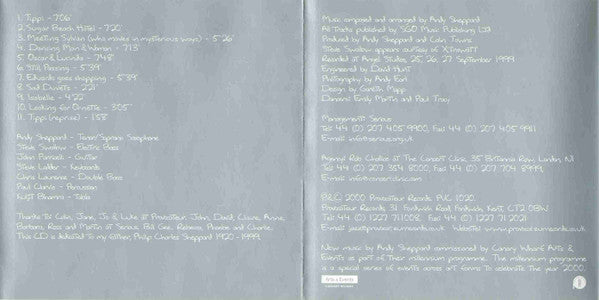 1. Tippi - 7'06
2. Sugar Beach Hotel - 7'20
3. Meeting Sylvian (who moves in mysterious ways) - 5'26
4. Dancing Man & Woman - 7'13
5. Oscar & Lucinda - 7'48
6. Still Passing - 5'39
7. Eduardo goes shopping - 5'39
8. Sad Duvets - 2'21
9. Isabelle - 4'22
10. Looking for Ornette - 3'05
11. Tippi (reprise) - 1'58
Andy Sheppard - Tenor/Soprano Saxophone
Steve Swallow - Electric Bass
John Parricelli - Guitar
Steve Lodder - Keyboards
Chris Laurence - Double Bass
Paul Clarvis - Percussion
Kuljit Bhamra - Tabla
Thanks to Colin, Jane, Jo & Luke at Provocateur. John, David, Claire, Anne,
Barbara, Ross and Martin at Serious. Bill Gee, Rebecca, Phoebe and Charlie.
This CD is dedicated to my father, Philip Charles Sheppard 1920-1999.
Music composed and arranged by Andy Sheppard
All Tracks published by SGO Music Publishing Ltd
Produced by Andy Sheppard and Colin Towns
Steve Swallow appears courtesy of XtraWatt
Recorded at Angel Studios, 25, 26, 27 September 1999
Engineered by David Hunt
Photography by Andy Earl
Design by Gareth Mapp
Dancers: Emily Martin and Paul Troy
Management: Serious
Tel: 44 (0) 207 405 9900, Fax: 44 (0) 207 405 9911
E-mail: info@serious.org.uk
Agency: Rob Challice at The Concert Clinic, 35 Britannia Row, London, N1
Tel: 44 (0) 207 354 8000, Fax: 44 (0) 207 704 8999,
E-mail: info@concertclinic.com
P&C 2000 Provocateur Records PVC 1020.
Provocateur Records 31 Fordwich Road Fordwich, Kent, CT2 0BW
Tel: 44 (0) 1227 711008, Fax: 44 (0) 1227 712021
E-mail: jazz@provocateurrecords.co.uk Website: www.provocateurrecords.co.uk
New music by Andy Sheppard commissioned by Canary Wharf Arts &
Events as part of Their millennium programme. The millennium programme
is a special series of events across art forms to celebrate the year 2000.
Arts & Events